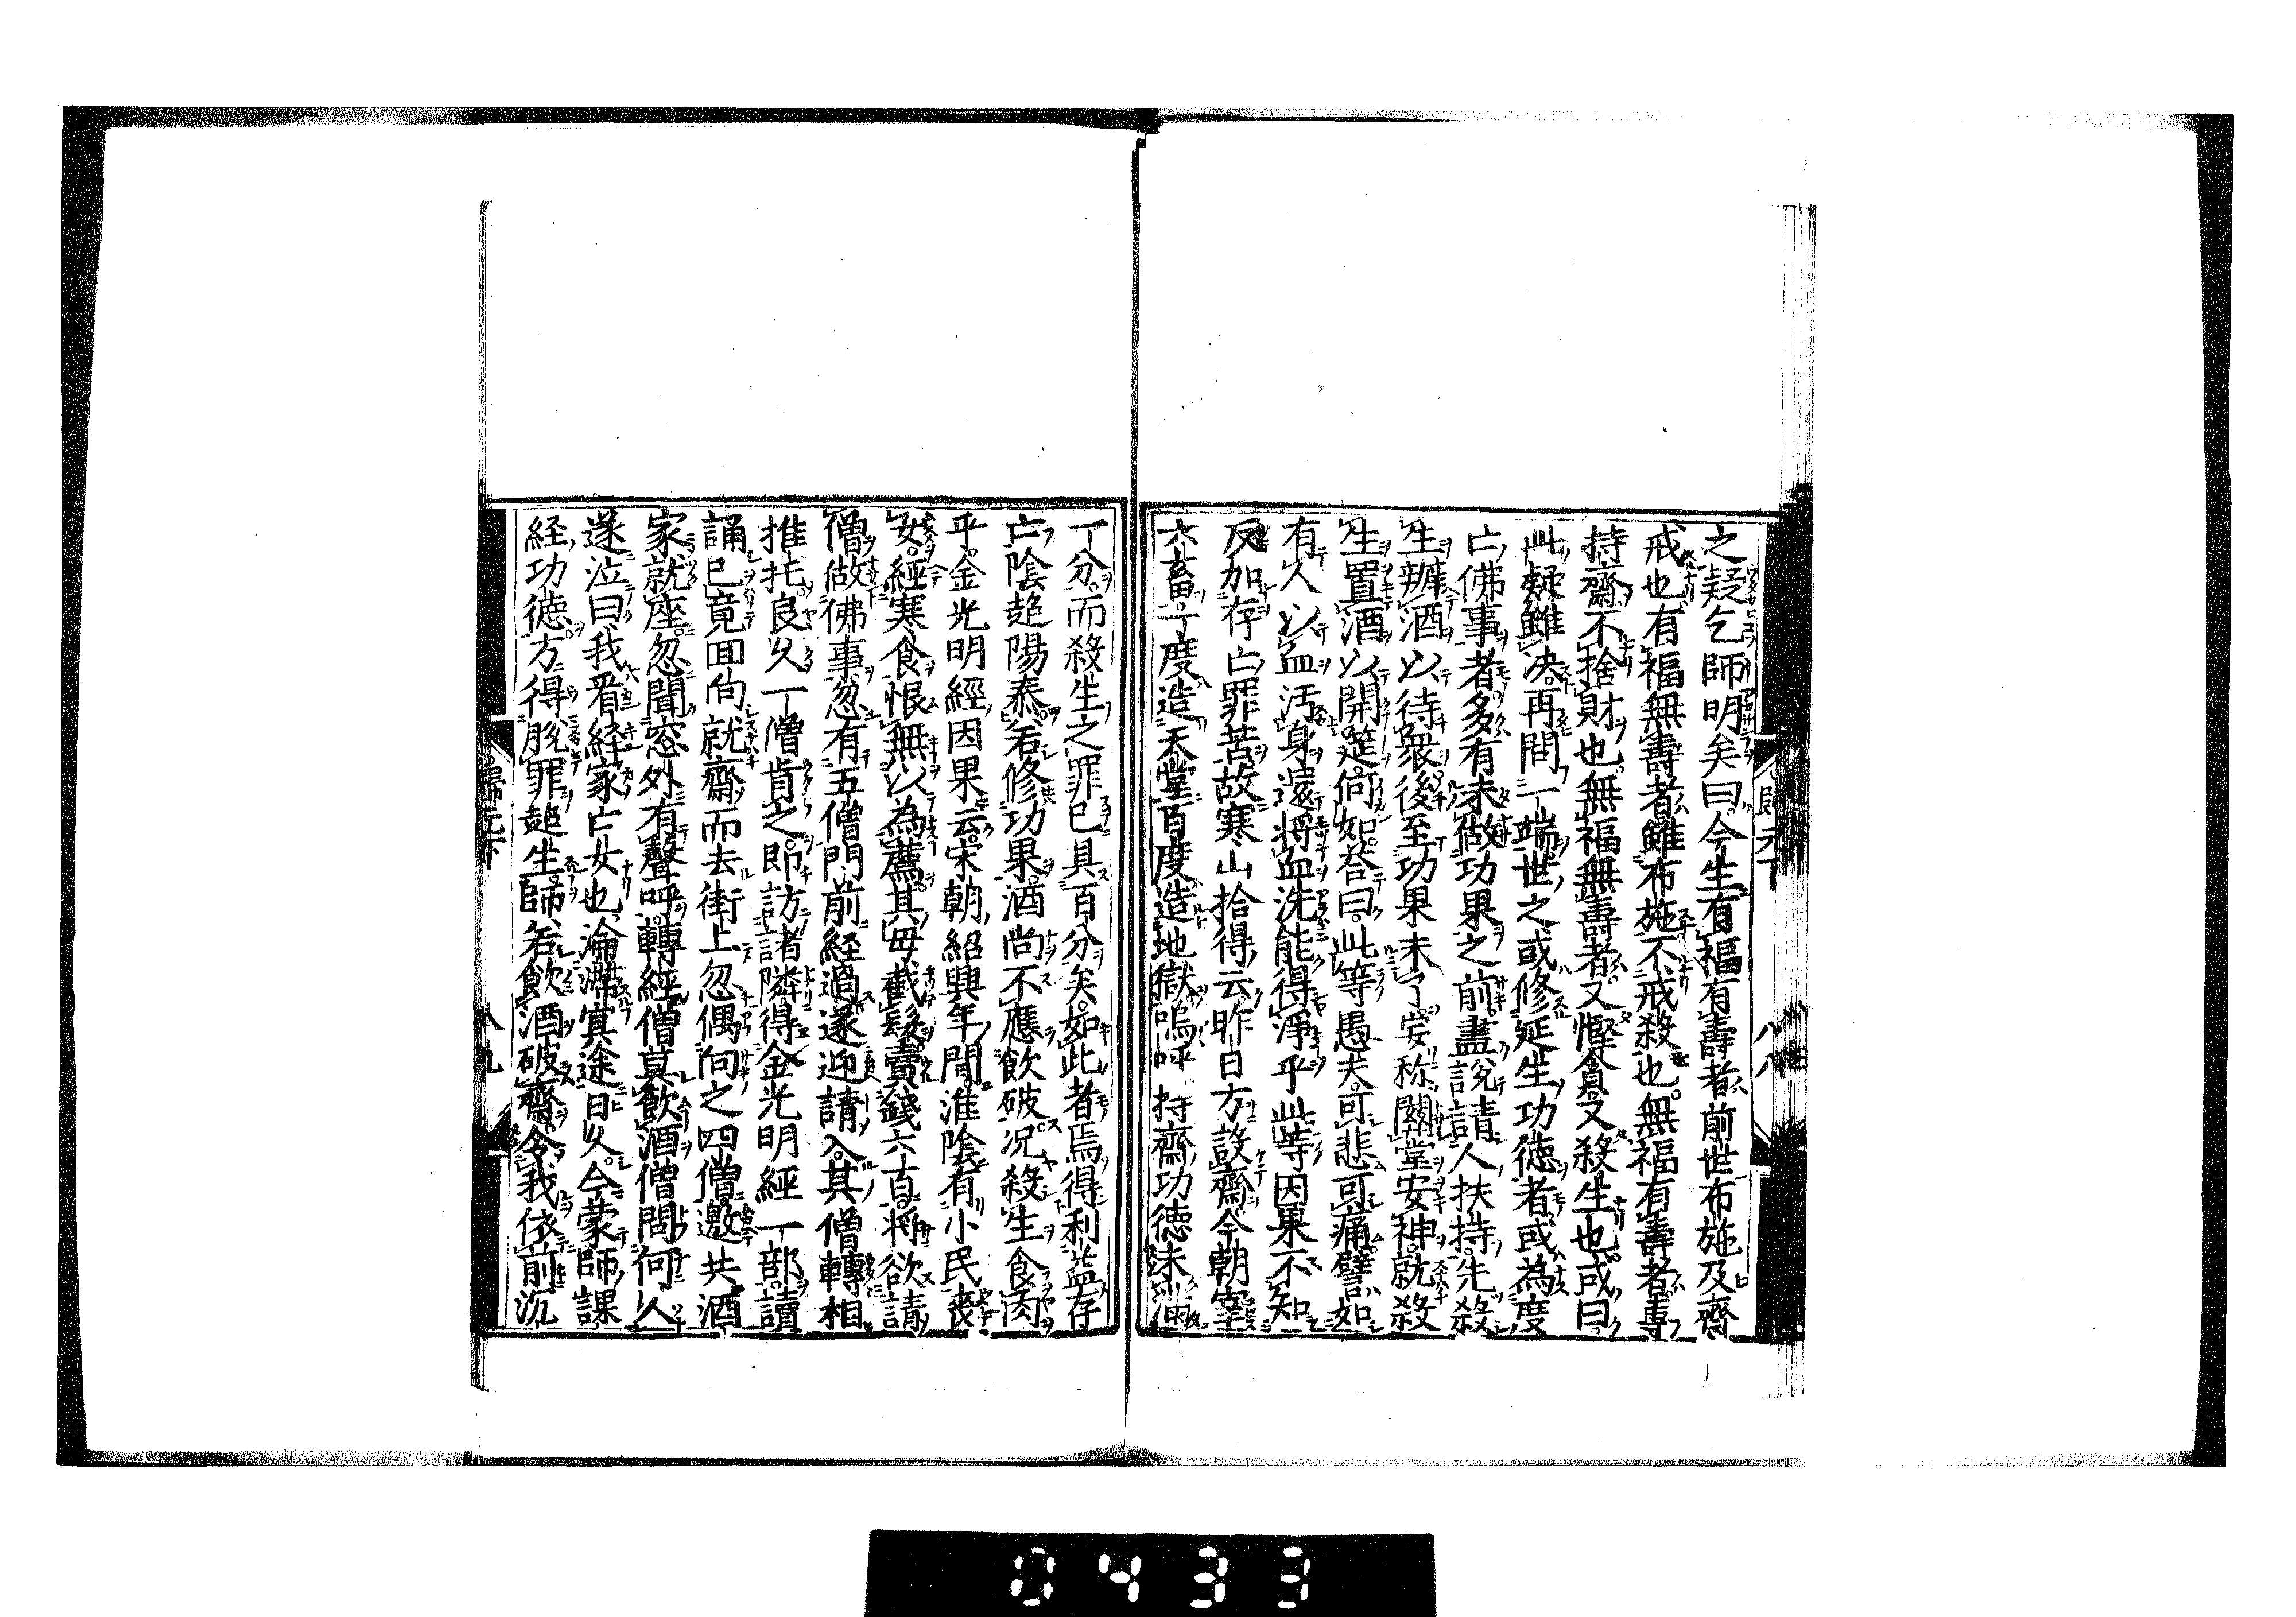 之疑乞師明矣曰今生有福有壽者前世布施及齋
戒也有福無壽者雖布施不戒殺也無福有壽者專
持齋不捨財也無福無壽者又慳貪又殺生也或曰
此疑雖决再問一端世之或修延生功徳者或為度
亡佛事者多有未做功果之前盡說請人扶持先殺
生辦酒以待衆後至功果未了安称關堂安神就殺
生置酒以開筵何如答曰此等愚夫可悲可痛譬如
有人以血汚身還將血洗能得淨乎此等因果不知
反加存亡罪苦故寒山拾得云昨日方設齋今朝宰
六畜一度造天堂百度造地獄嗚呼持齋功德未滿
一分而殺生之罪已具百分矣如此者焉得利益存
亡陰超陽泰若修功果酒尚不應飲破况殺生食肉
乎金光明經因果云宋朝紹興年間淮陰有小民喪
女經寒食恨無以為薦其母截髮賣錢六百將欲請
僧做佛事忽有五僧門前経過遂迎請入其僧轉相
推托良久一僧肯之即訪諸隣得金光明經一部讀
誦已竟回向就齋而去街上忽偶向之四僧邀共酒
家就座忽聞窓外有聲呼轉經僧莫飲酒僧問何人
遂泣曰我看経家亡女也淪滯冥途日久今蒙師課
経功徳方得脫罪超生師若飲酒破齋令我依前沉
歸元下
八九
八八
0433